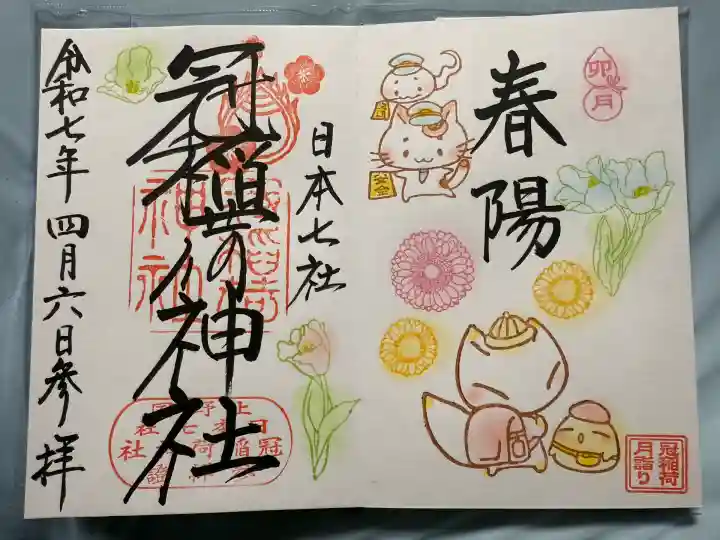 卯月
春陽
安全
冠稲荷
月詣り
日本七社
冠稲荷神社
令和七年四月六日参拝